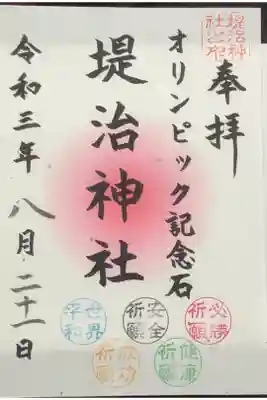 奉拝
堤治神社之印
オリンピック記念石
堤治神社
令和三年 八月 二十一日
世界平和
安全祈願
必勝祈願
成功祈願
健康祈願